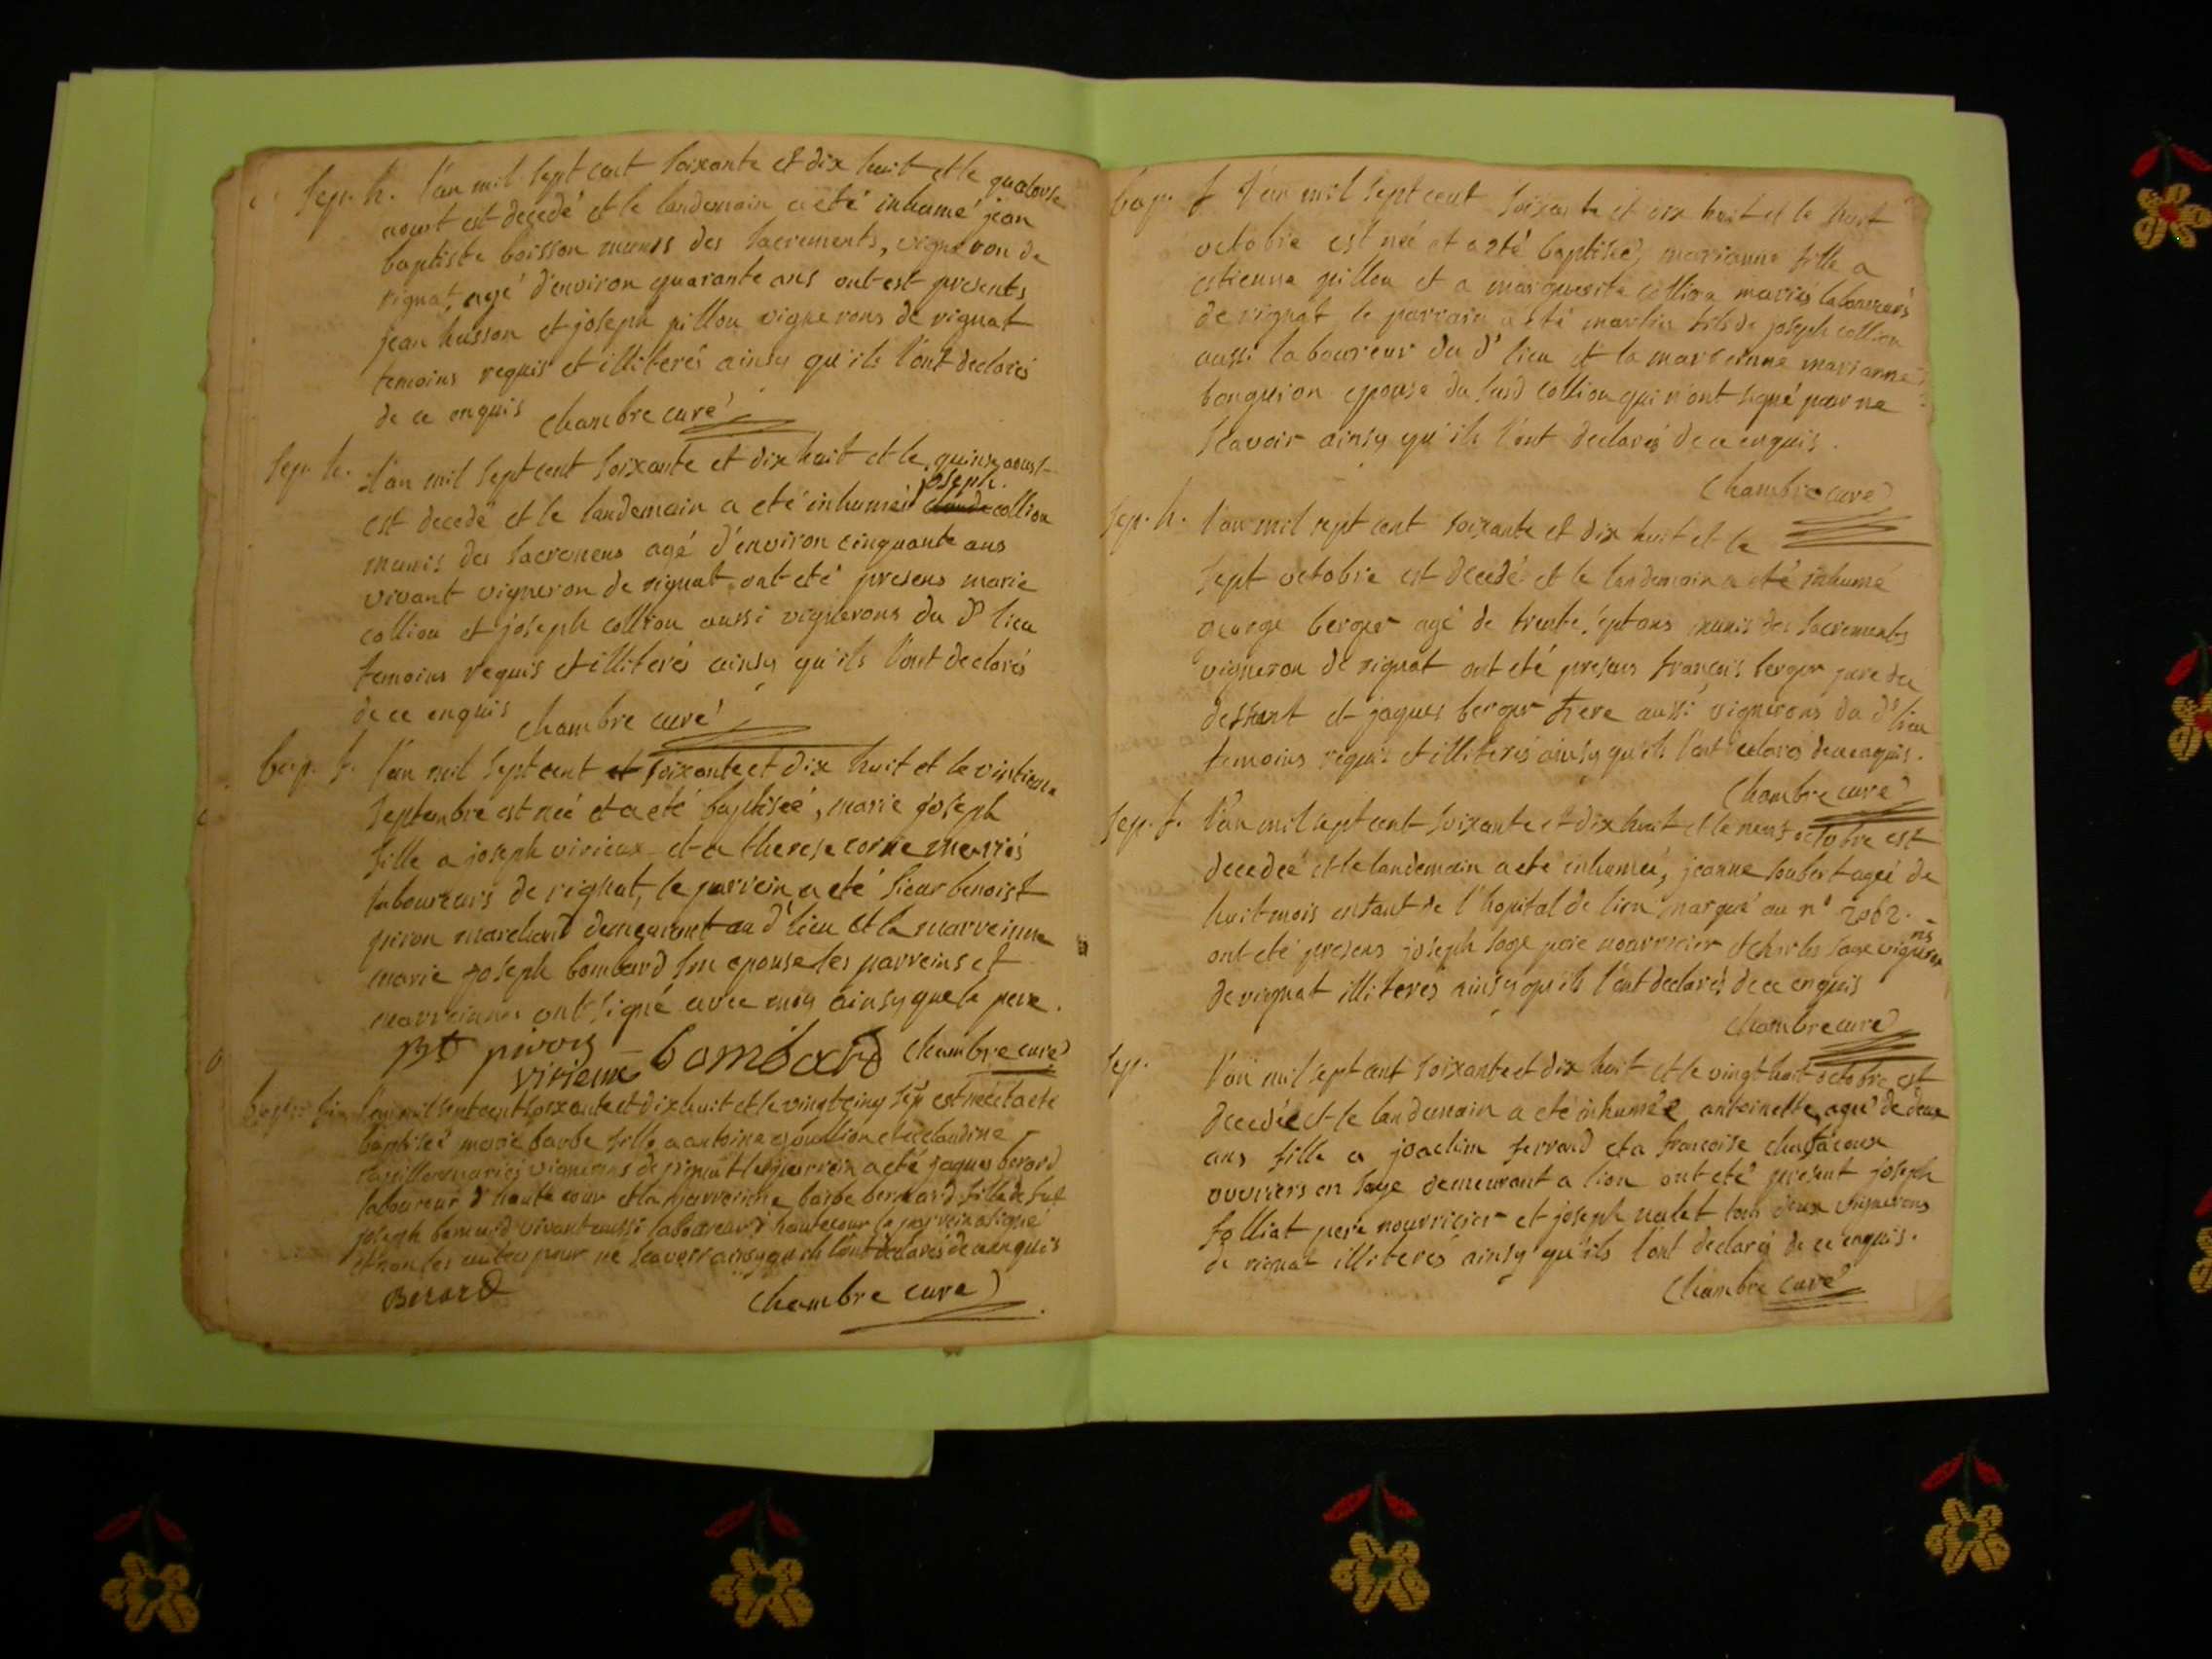 Sep. h. l'an mil sept cent soixante et dix huit et le quatorse
aout est decedé et le landemain a eté inhumé jean
baptiste boisson munis des sacrements, vigneron de
rignat, agé d'environ quarante ans ont est presents
jean husson et joseph pillon vignerons de rignat
temoins requis et illiterés ainsy qu'ils l'ont declarés
de ce enquis Chambre curé
Sep. h. l'an mil sept cent soixante et dix huit et le quinse aoust
joseph
est decedé et le landemain a eté inhumé claude collion
munis des sacremens agé d'environ cinquante ans
vivant vigneron de rignat ont eté presens marie
collion et joseph collion aussi vignerons du d lieu
temoins requis et illiterés ainsy qu'ils l'ont declarés
de ce enquis Chambre curé
bap. f. l'an mil sept cent et soixante et dix huit et le vintieme
septembre est née et a eté baptiseé, marie joseph
fille a joseph virieux et a therese corne mariés
laboureurs de rignat, le parrein a eté sieur benoist
piron marchand demeurant au d lieu et la marreinne
marie joseph bombard son epouse les parreins et
marreinnes ont signé avec moy ainsy que le pere.
Bt piron bombard Chambre curé
virieux
l'an mil sept cent soixante et dix huit et le vingt cinq sep est née et a eté
baptiseé marie barbe fille a antoine goullion et a claudine
mariés vignerons de rignat le parrein a eté jaques berard
laboureur d hautecour et la marreinne barbe bernard fille de feu
joseph bernard vivant aussi laboureur d hautecour le parrein a signé
et non les autres pour ne scavoir ainsy qu'ils l'ont declarés de ce enquis
Berard Chambre curé
bap. f l'an mil sept cent soixante et dix huit et le huit
octobre est née et a eté baptiseé, marianne fille a
estienne pillon et a marguerite collion mariés laboureurs
de rignat le parrain a eté martin fils de joseph collion
aussi laboureur du d lieu et la marreinne marianne
bonguion epouse du susd collion qui n'ont signé pour ne
scavoir ainsy qu'ils l'ont declarés de ce enquis.
Chambre curé
Sep. h. l'an mil sept cent soixante et dix huit et le
sept octobre est decedé et le landemain a eté inhumé
george berger agé de trente sept ans munis des sacrements
vigneron de rignat ont eté presens françois berger pere du
deffunt et jaques berger frere aussi vignerons du d lieu
temoins requis et illiterés ainsy qu'ils l'ont declarés de ce enquis.
Chambre curé
Sep. f. l'an mil sept cent soixante et dix huit et le neuf octobre est
decedeé et le landemain a eté inhumeé, jeanne joubert ageé de
huit mois enfant de l'hopital de lion marqué au n° 2062.
ont eté presens joseph sage pere nourricier et charles sage vignerons
de rignat illiterés ainsy qu'ils l'ont declarés de ce enquis
Chambre curé
Sep. l'an mil sept cent soixante et dix huit et le vingt huit octobre est
decedée et le landemain a eté inhumée antoinette ageé de deux
ans fille a joachim ferrand et a francoise
ouvriers en soye demeurant a lion ont eté present joseph
folliat pere nourricier et joseph nalet tous deux vignerons
de rignat illiterés ainsy qu'ils l'ont declarés de ce enquis.
Chambre curé